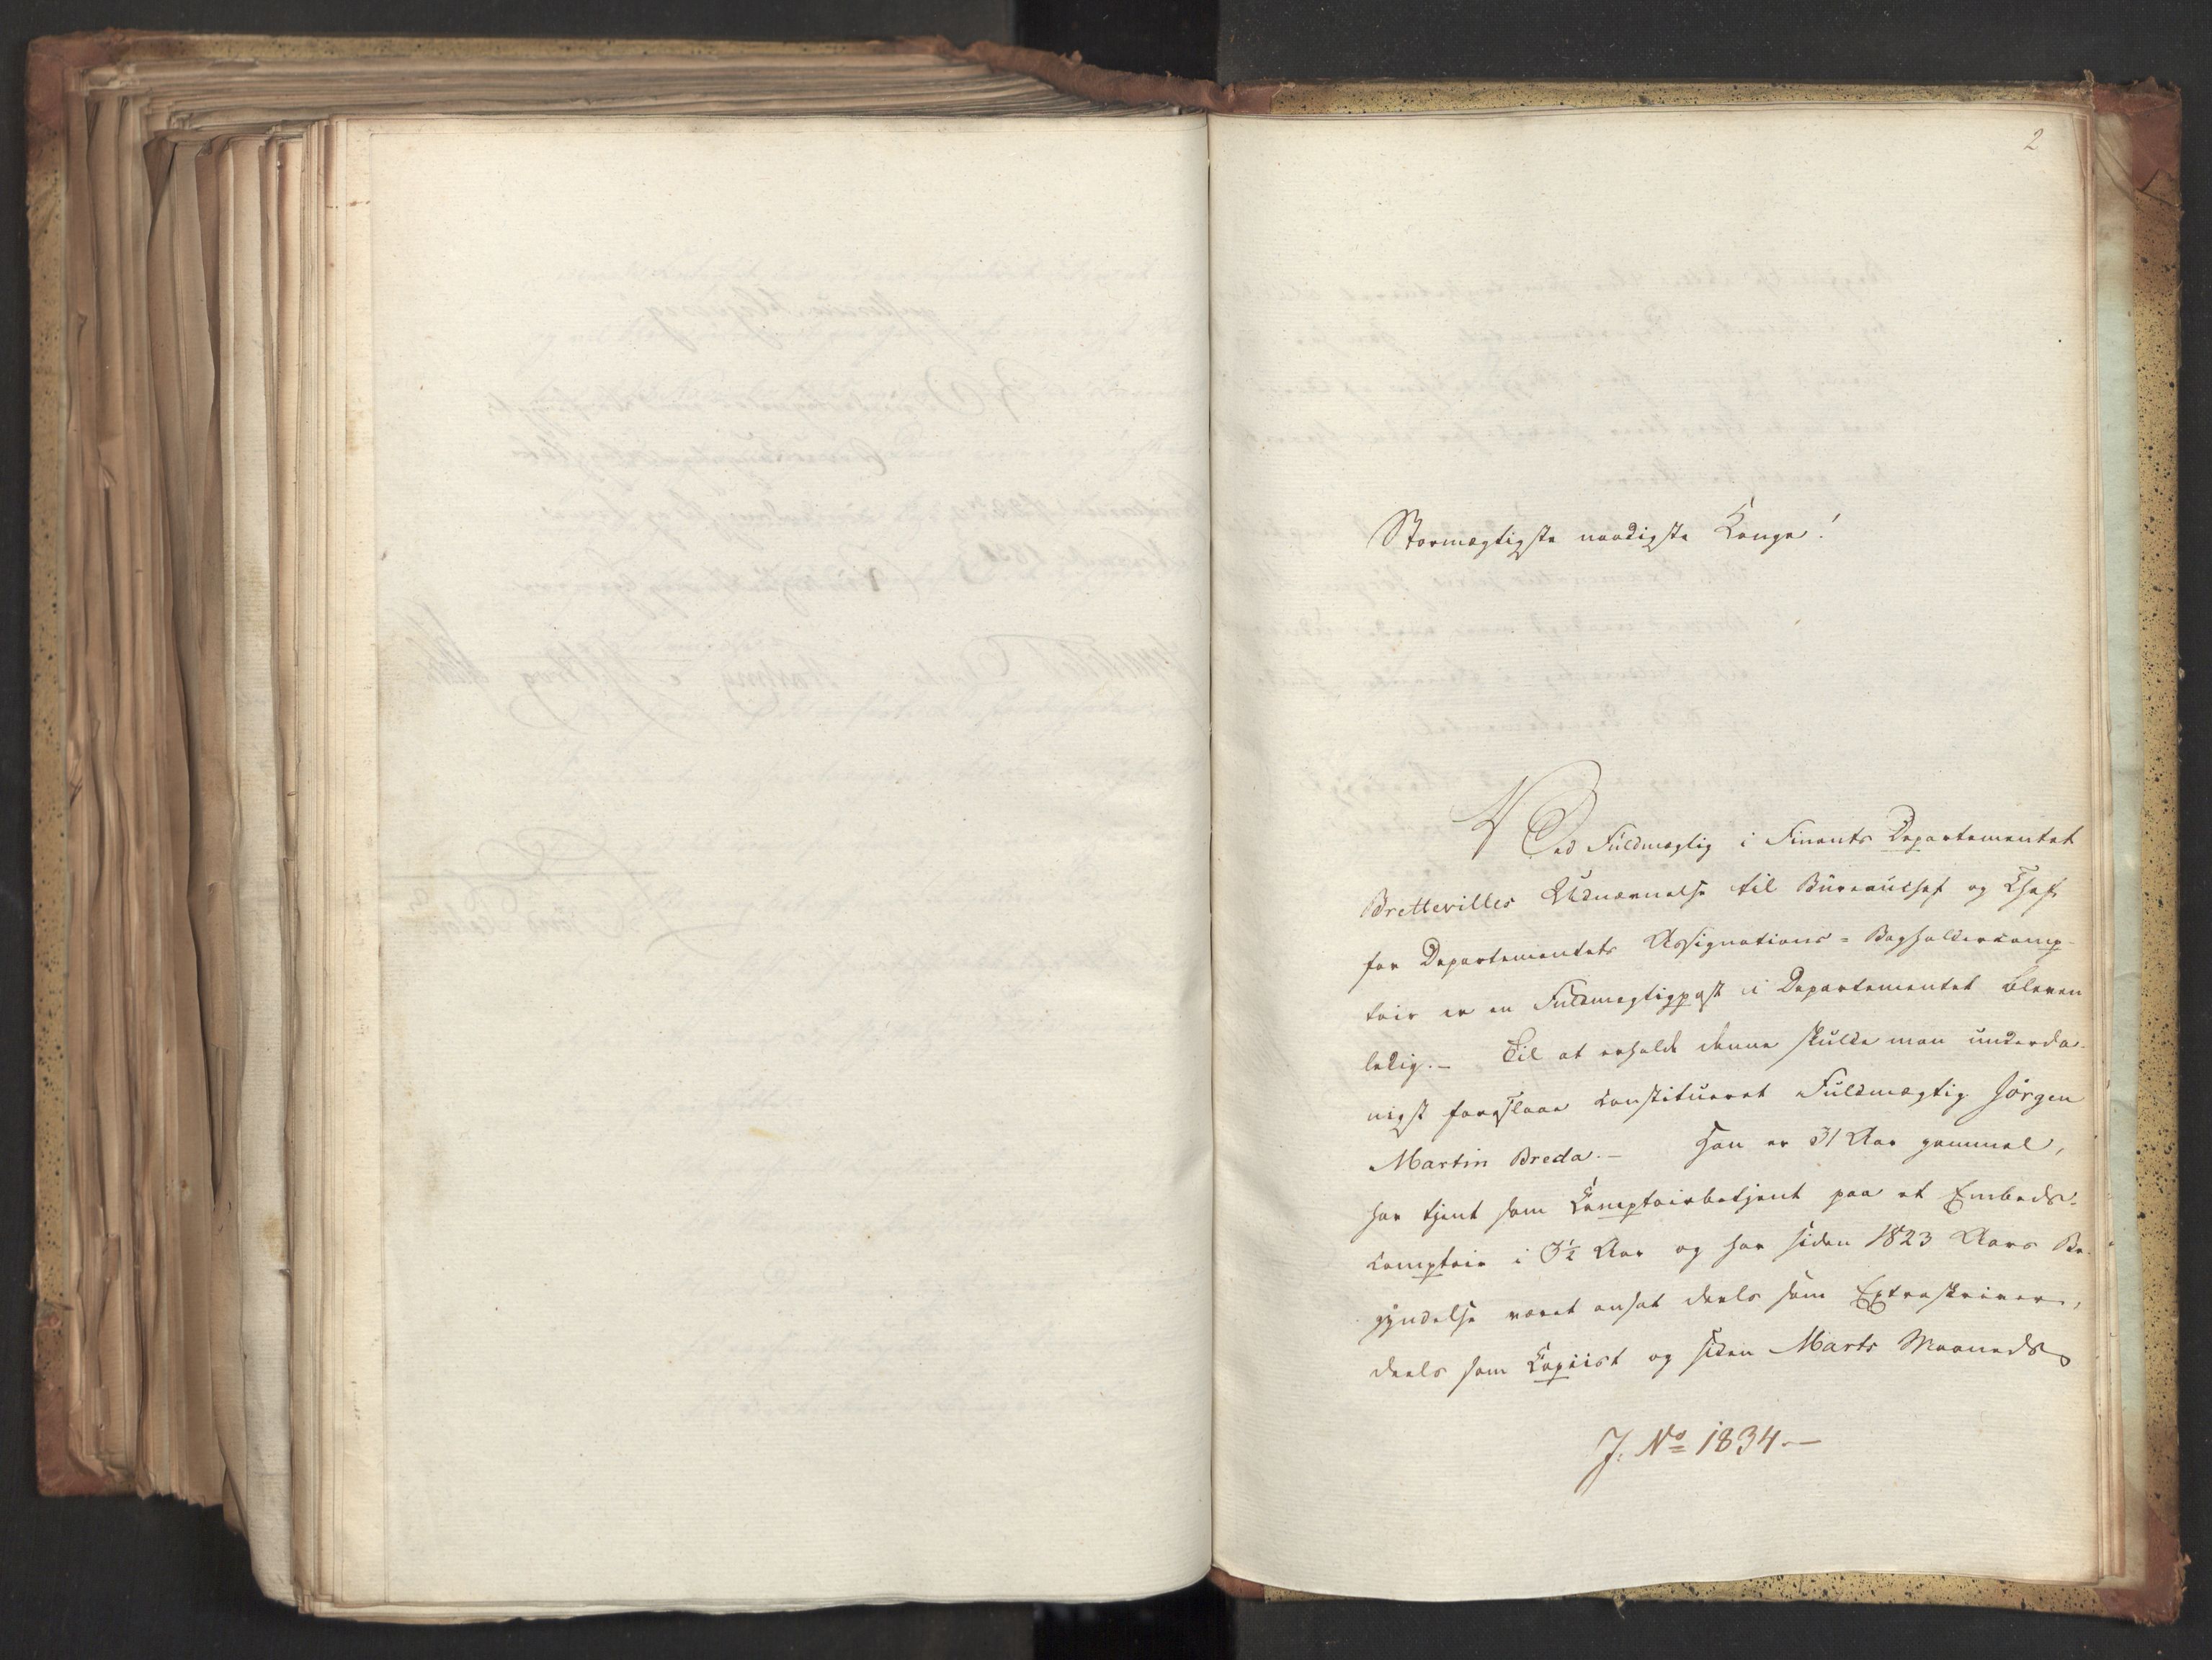 2
Stormægtigste naadigste Konge!
Ved Fuldmægtig i Finants Departementet
Brettevilles Udnævnelse til Bureauchef og Chef
for Departementets Assignations- Bogholdercomp-
toir er en Fuldmægtigpost i Departementet bleven
ledig. – Til at erholde denne skulde man underda-
nigst foreslaae constitueret Fuldmægtig Jörgen
Martin Breda. – Han er 31 Aar gammel,
har tjent som Comptoirbetjent paa et Embeds-
comptoir i 3½ Aar og har siden 1823 Aars Be-
gyndelse været ansat deels som Extraskriver,
deels som Copiist og siden Marts Maaneds
J. No 1834.–